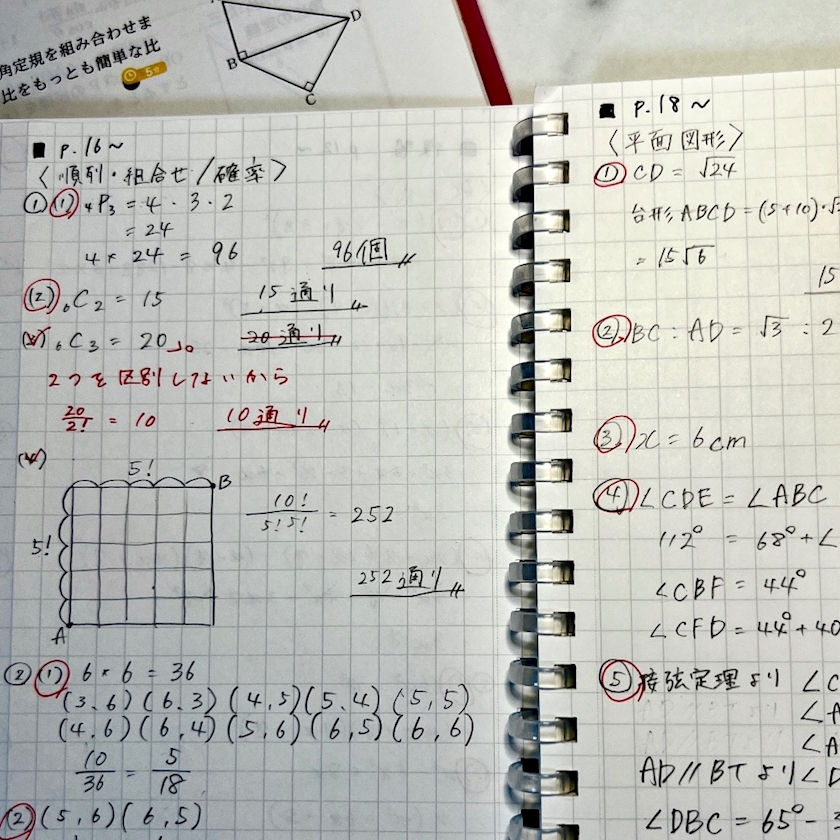 角定規を組み合わせま
比をもっとも簡単な比
5分
D
B
C
■ p.16~
〈順列・組合せ/確率〉
① (1) ₄P₃ = 4・3・2
= 24
4 × 24 = 96 96個
(2) ₆C₂ = 15 15通り
(3) ₆C₃ = 20 20通り
2つを区別しないから
20/2! = 10 10通り
(4)
5! B
5!
10!/5!5! = 252
252通り
A
② (1) 6 × 6 = 36
(3,6) (6,3) (4,5) (5,4) (5,5)
(4,6) (6,4) (5,6) (6,5) (6,6)
10/36 = 5/18
(2) (5,6) (6,5)
■ p.18~
〈平面図形〉
① CD = √24
台形ABCD = (5+10)・√
= 15√6
15
② BC : AD = √3 : 2
③ x = 6cm
④ ∠CDE = ∠ABC
112° = 68° + ∠
∠CBF = 44°
∠CFD = 44° + 40
⑤ 接弦定理より ∠C
∠A
∠A
AD // BT より ∠D
∠DBC = 65° -